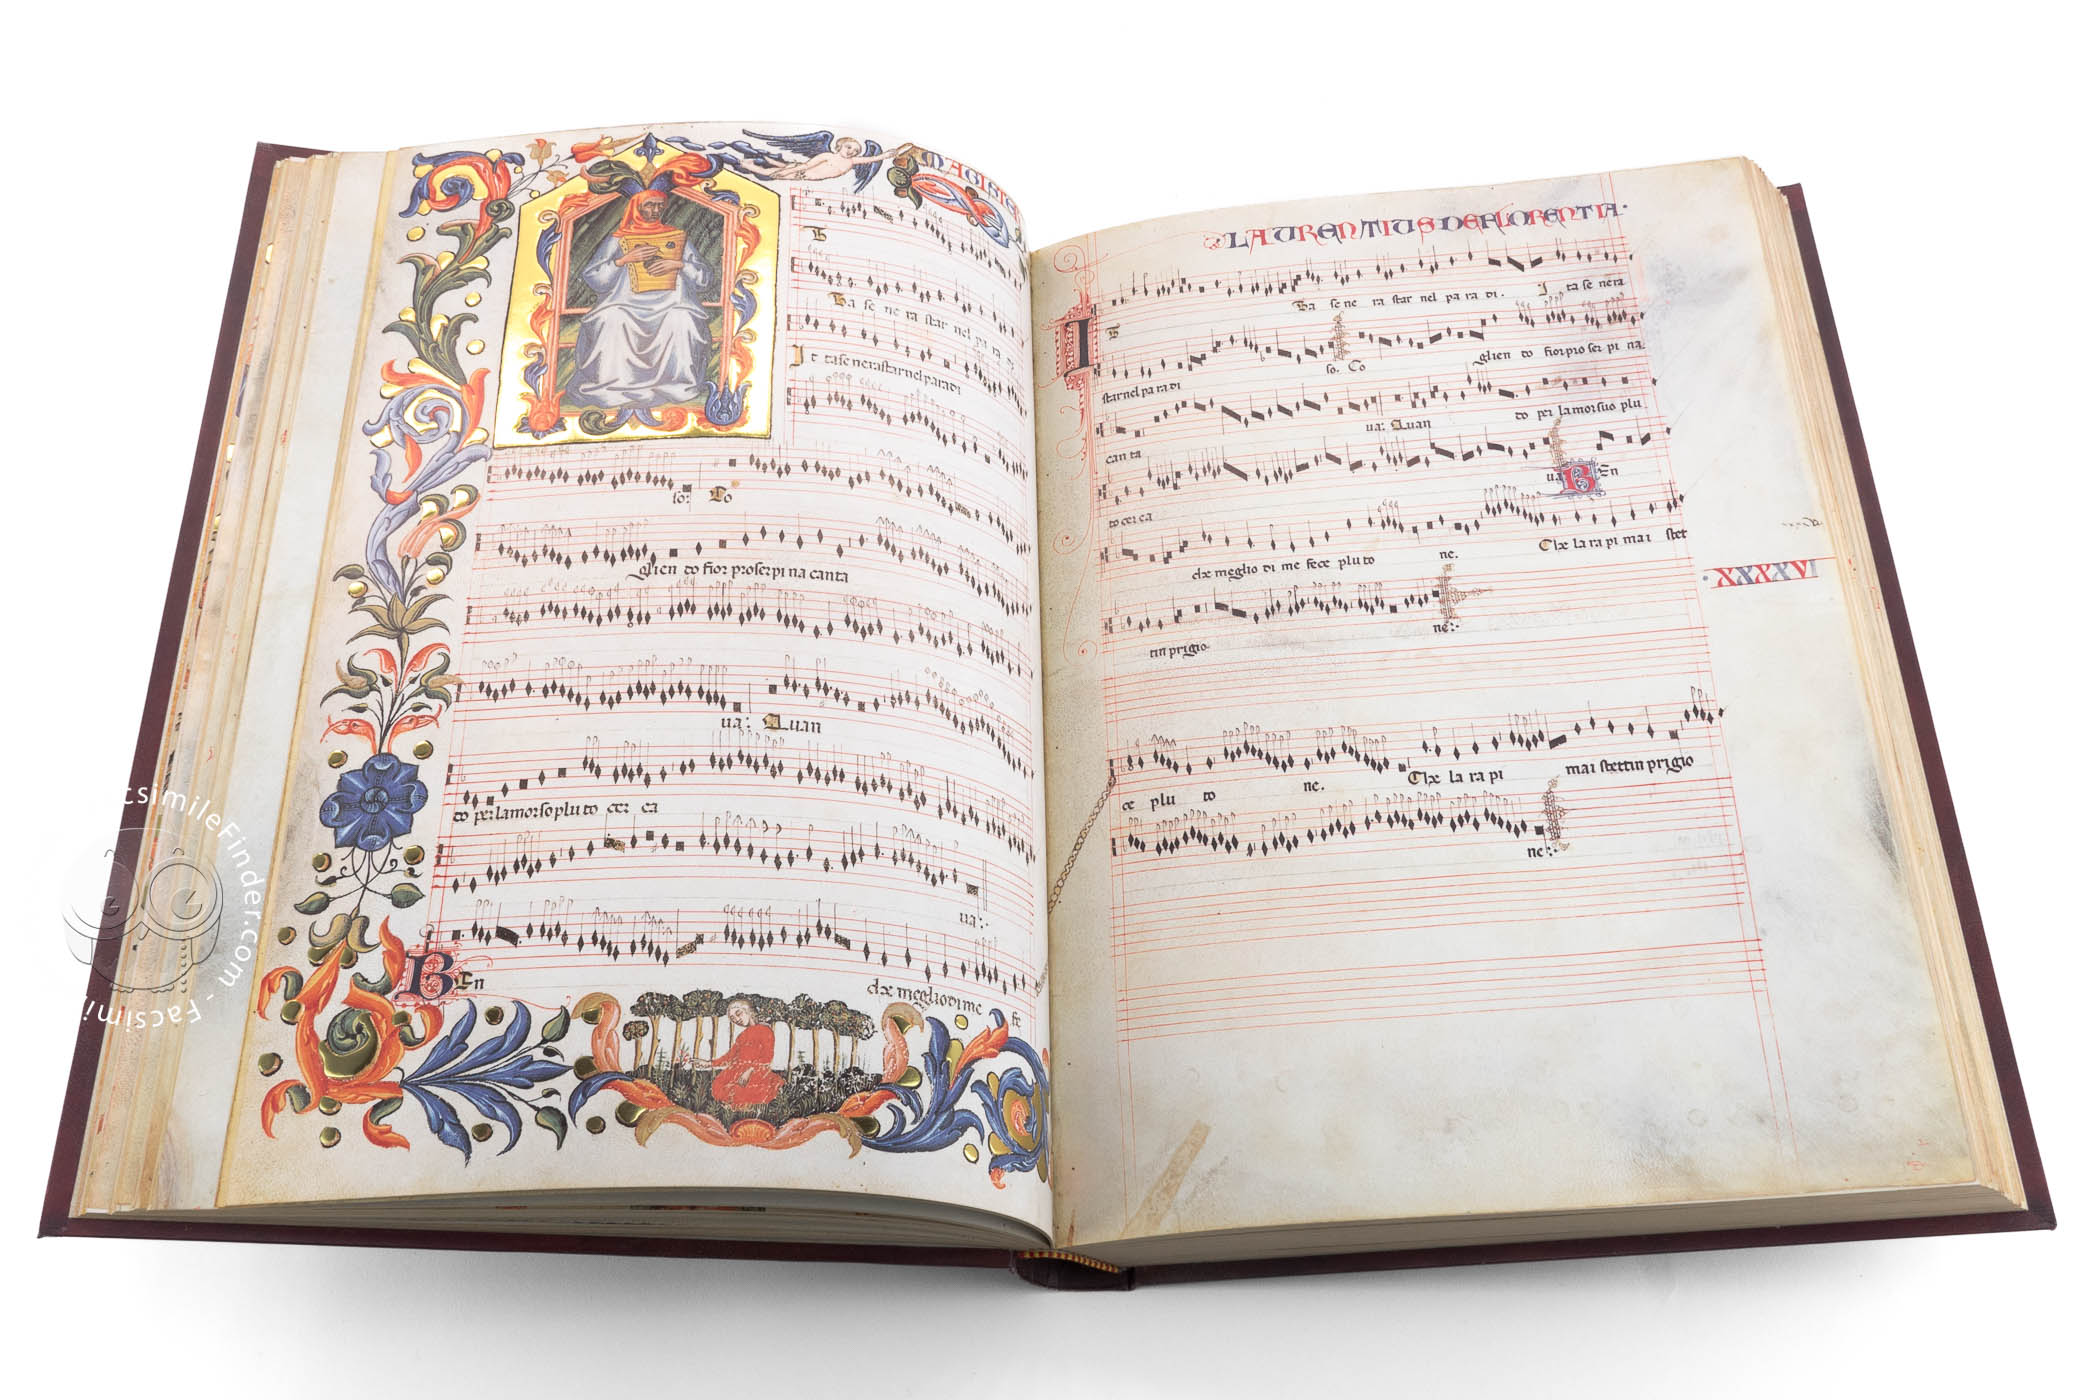 MAGISTE
Ta se ne ra star nel pa ra di
It ta se nera star nel para di
so: Co
glien do fior proserpi na canta
ua: Quan
do per la morso plu to cer ca
ua:
BEn
che meglio di me fe
LAURENTIUS DE FLORENTIA.
I
Ta se ne ra star nel pa ra di. I ta se nera
star nel pa ra di so. Co glien do fior pro ser pi na
can ta ua: Quan do per la morsuo plu
to cer ca ua BEn
che meglio di me fece plu to ne. Che la ra pi ma i stet
tin prigio ne:
XXXXVI
ce plu to ne. Che la ra pi mai stettin prigio
ne:
FacsimileFinder.com - Facsimil